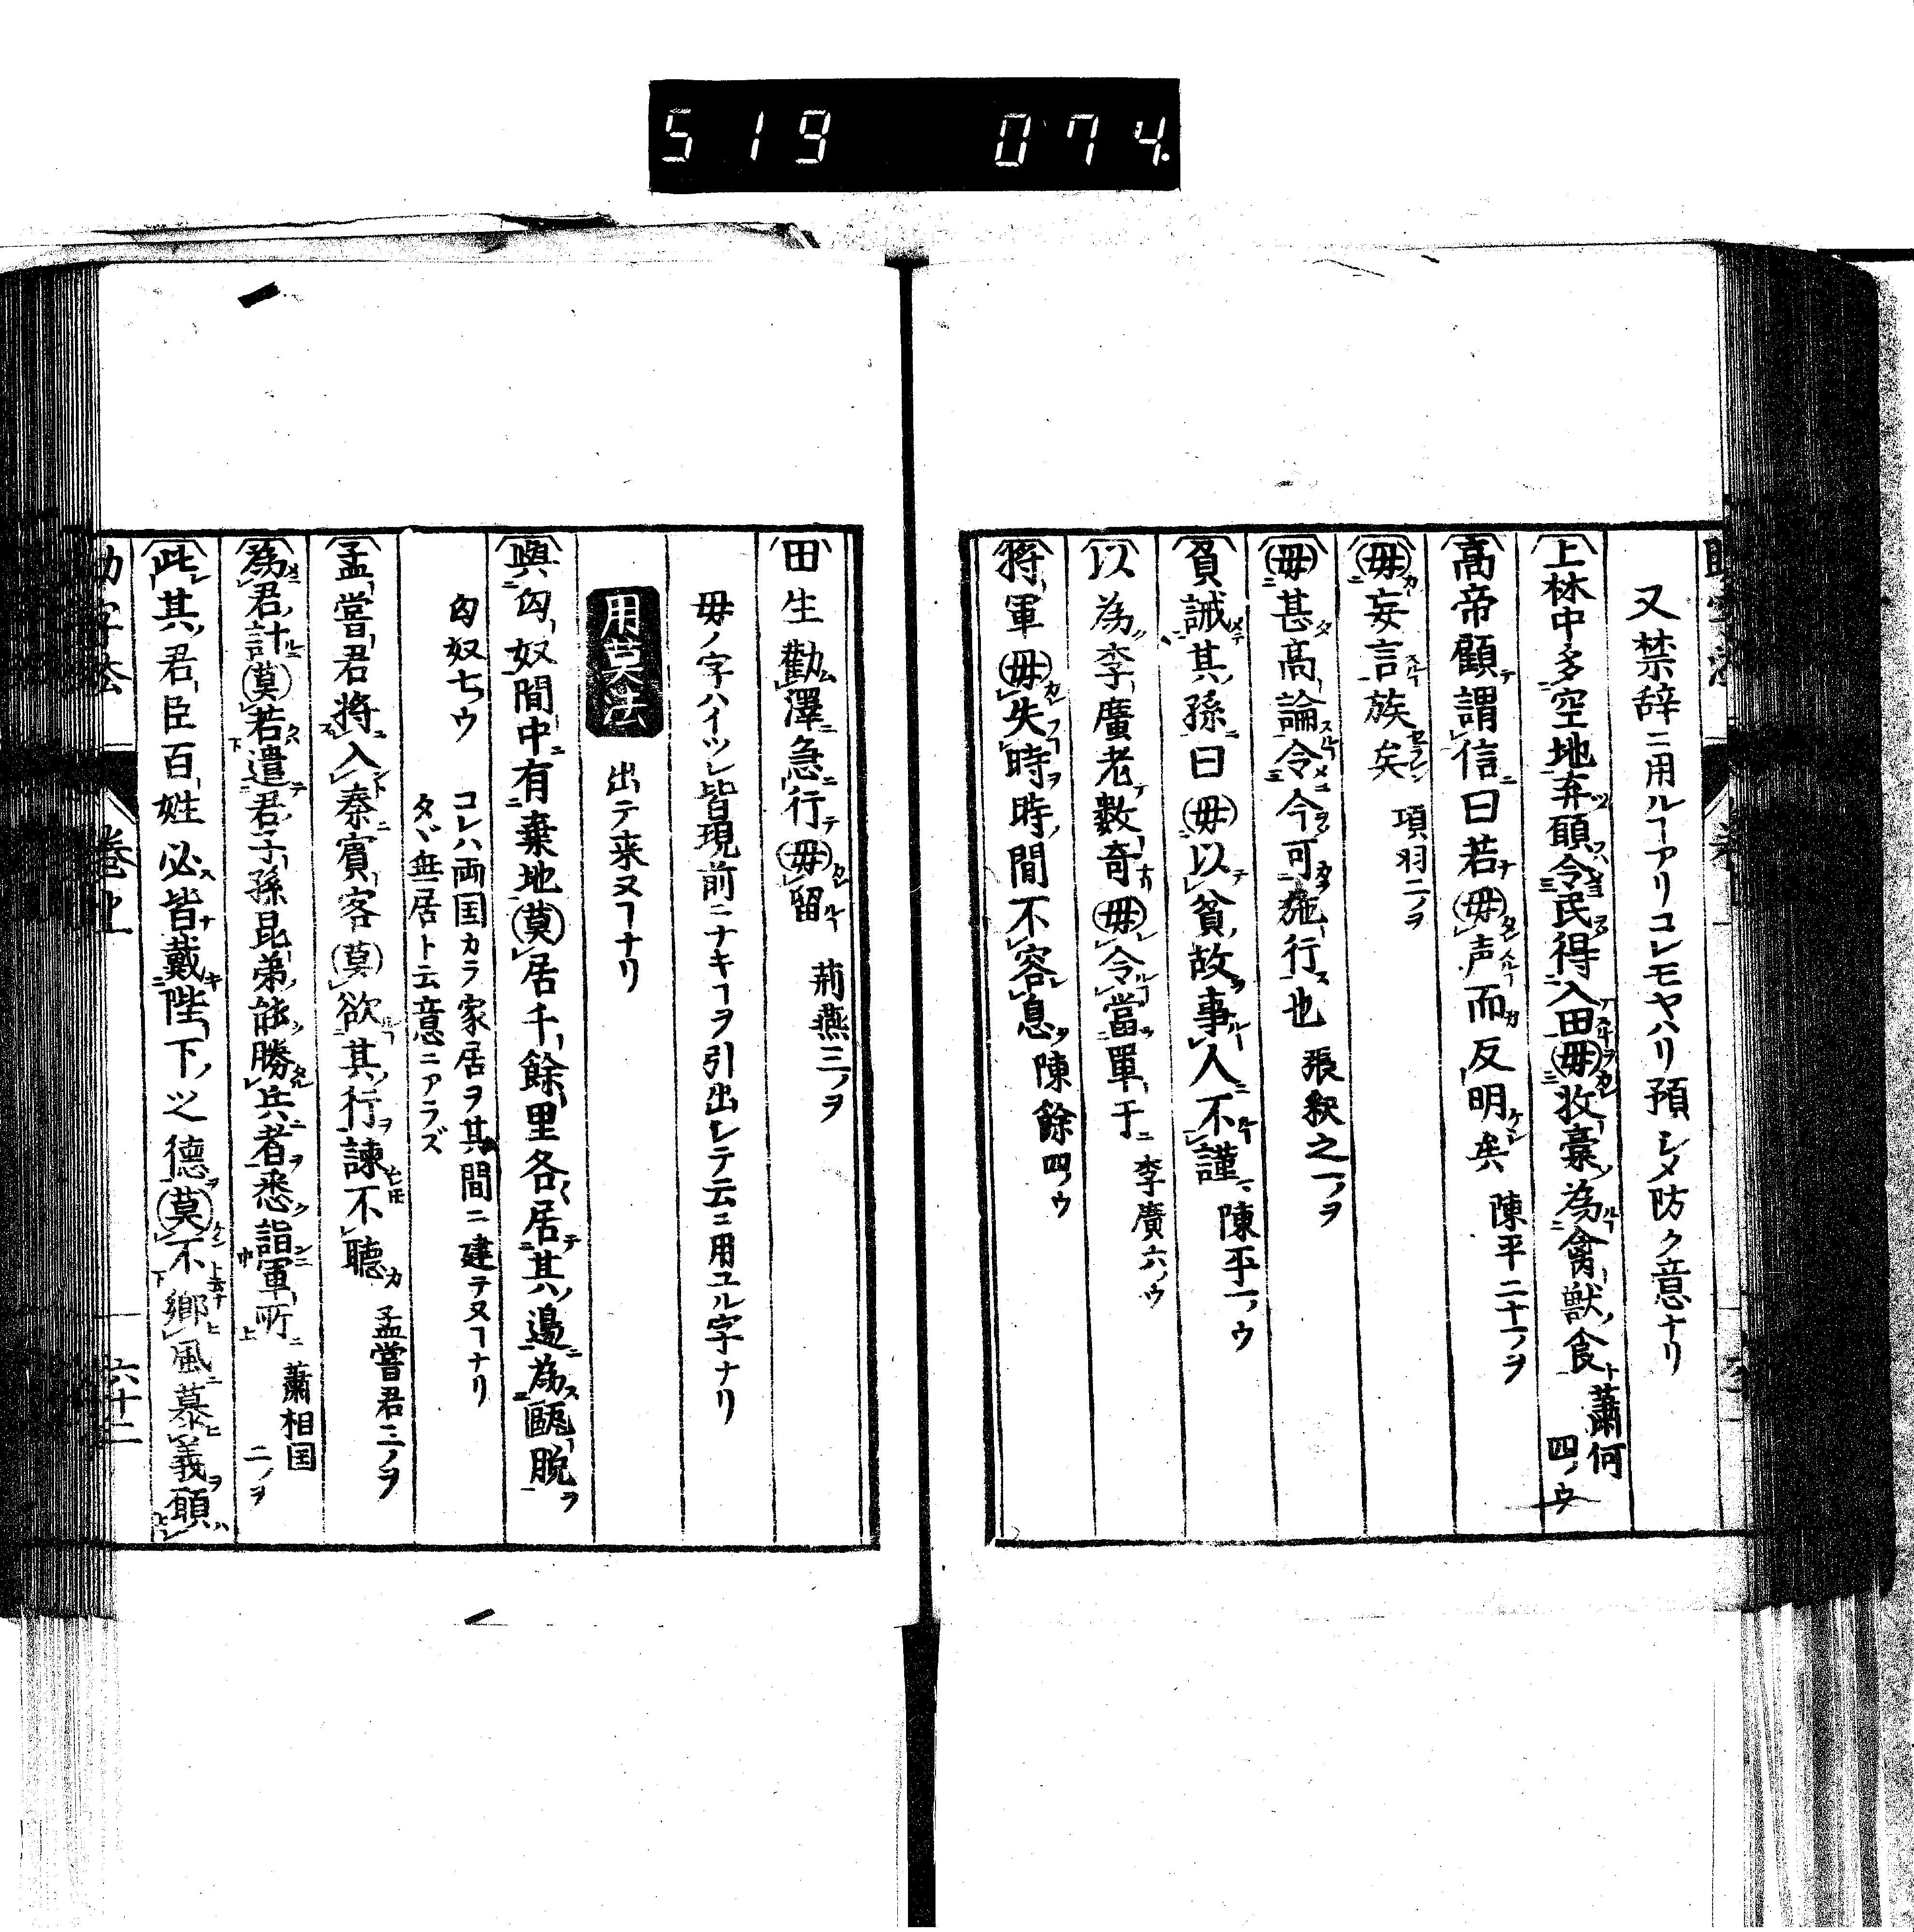 519 074.
又禁辞ニ用ルヿアリコレモヤハリ預シメ防ク意ナリ
上林中多空地弃願令民得入田毋收稾為禽獸食 蕭何四ノウ
高帝顧謂信曰若毋声而反明矣 陳平二十一ノヲ
毋妄言族矣 項羽二ノヲ
毋甚高論令今可施行也 張釈之一ノヲ
貧誡其孫曰毋以貧故事人不謹 陳平一ノウ
以為李廣老數奇毋令當單于 李廣六ノウ
将軍毋失時時間不容息 陳餘四ノウ
田生勸澤急行毋留 荊燕三ノヲ
毋ノ字ハイツレ皆現前ニナキヿヲ引出レテ云ニ用ユル字ナリ
用莫法 出テ来ヌヿナリ
與匈奴間中有棄地莫居千餘里各居其邉為甌脱
匈奴七ノウ コレハ両国カラ家居ヲ其間ニ建ヲヌヿナリ
タヾ無居ト云意ニアラズ
孟嘗君将入秦賓客莫欲其行諫不聽 孟嘗君三ノヲ
為君計莫若遣君子孫昆弟能勝兵者悉詣軍所 蕭相国二ノヲ
此其君臣百姓必皆戴陛下之德莫不鄉風慕義願
助字法 巻上 六十二